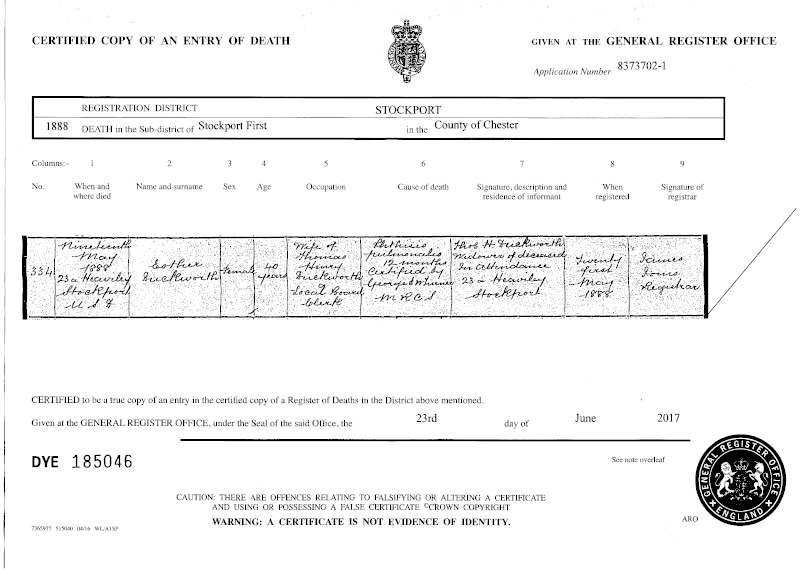 CERTIFIED COPY OF AN ENTRY OF DEATH
GIVEN AT THE GENERAL REGISTER OFFICE
Application Number 8373702-1
REGISTRATION DISTRICT STOCKPORT
1888 DEATH in the Sub-district of Stockport First in the County of Chester
Columns:- 1 2 3 4 5 6 7 8 9
No. When and where died Name and surname Sex Age Occupation Cause of death Signature, description and residence of informant When registered Signature of registrar
334
Nineteenth
May
1888
23a Heaviley
Stockport
U S D
Esther
Duckworth
Female
40
years
Wife of
Thomas
Henry
Duckworth
Local Board
Clerk
Phthisis
pulmonalis
12 months
Certified by
George
MRCS
Thos H Duckworth
Widower of deceased
In attendance
23a Heaviley
Stockport
Twenty
first
May
1888
James
Jones
Registrar
CERTIFIED to be a true copy of an entry in the certified copy of a Register of Deaths in the District above mentioned.
Given at the GENERAL REGISTER OFFICE, under the Seal of the said Office, the 23rd day of June 2017
DYE 185046
See note overleaf
CAUTION: THERE ARE OFFENCES RELATING TO FALSIFYING OR ALTERING A CERTIFICATE
AND USING OR POSSESSING A FALSE CERTIFICATE ©CROWN COPYRIGHT
WARNING: A CERTIFICATE IS NOT EVIDENCE OF IDENTITY.
7365977 515040 04/16 WL/A1SP
ARO
GENERAL REGISTER OFFICE
ENGLAND